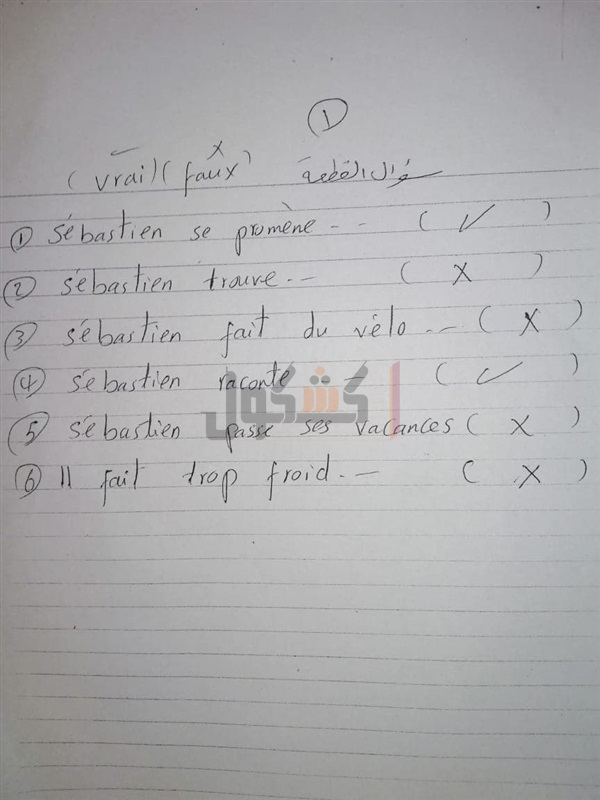 ①
(vrai) (faux) سؤال القطعة
① Sébastien se promène -- ( ✓ )
② Sébastien trouve -- ( X )
③ Sébastien fait du vélo -- ( X )
④ Sébastien raconte -- ( ✓ )
⑤ Sébastien passe ses vacances ( X )
⑥ Il fait trop froid. -- ( X )
كشكول